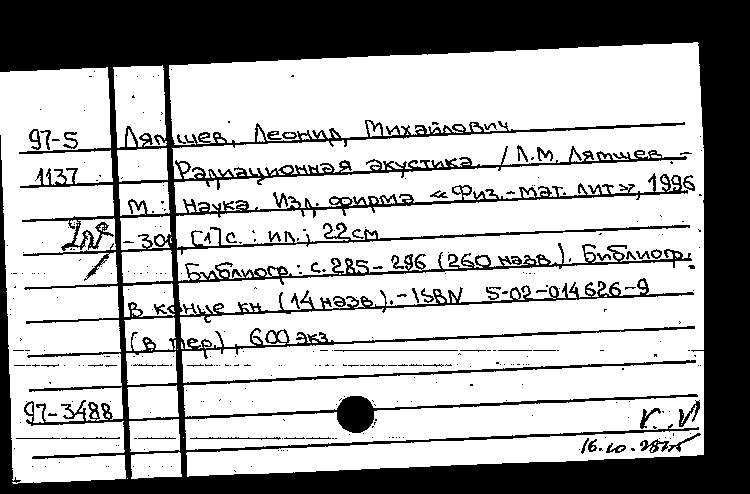 97-5 Лямшев, Леонид Михайлович.
1137 Радиационная акустика. / Л.М. Лямшев. -
М.: Наука. Изд. фирма «Физ.-мат. лит», 1996.
- 301, [1] с.: ил.; 22 см
Библиогр.: с. 285-296 (260 назв.). Библиогр.
в конце кн. (14 назв.). - ISBN 5-02-014626-9
(в пер.), 600 экз.
97-3488